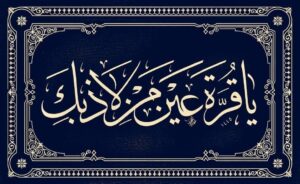 يا قُرَّةَ عَيْنِ مَنْ لَاذَ بِكَ